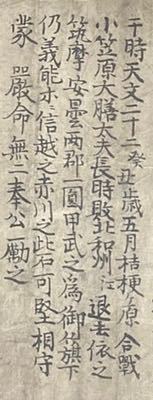 干時天文二十二癸丑歳五月桔梗ヶ原合戦
小笠原大膳太夫長時敗北和州江退去依之
筑摩安曇両郡一圓甲武之為御旗下
仍義能示信越之赤川之此石可堅相守
蒙嚴命無二奉公勵之